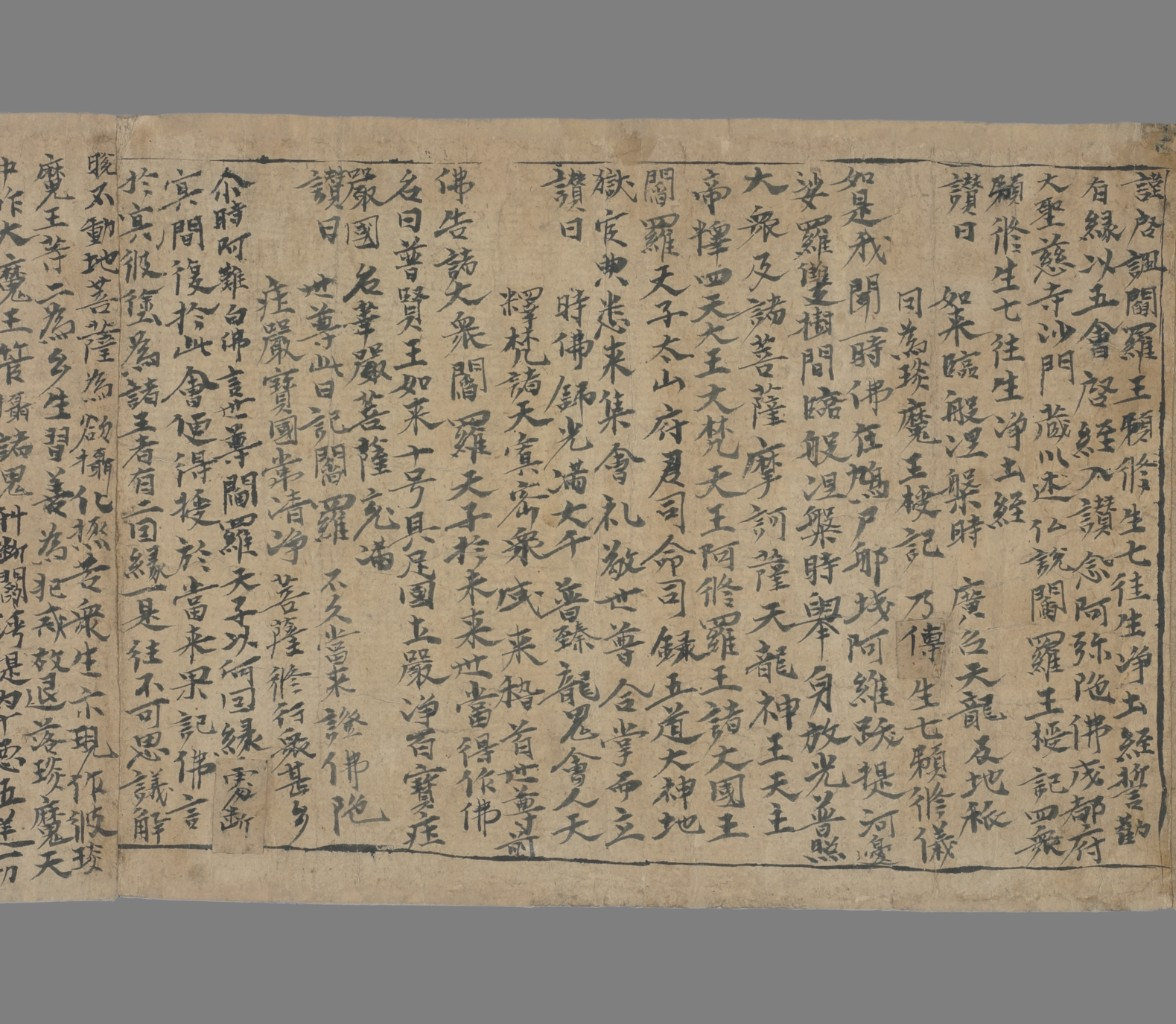 謹啓諷閻羅王預修生七往生淨土經誓勸
有緣以五會啓經入讚念阿弥陁佛成都府
大聖慈寺沙門藏川述仏說閻羅王授記四衆
預修生七往生淨土經
讚曰 如来臨般涅槃時 廣召天龍及地祇
囙為琰魔王授記 乃傳生七預修儀
如是我聞一時佛在鳩尸那城阿維跋提河邊
娑羅雙樹間臨般涅槃時舉身放光普照
大衆及諸菩薩摩訶薩天龍神王天主
帝釋四天大王大梵天王阿修羅王諸大國王
閻羅天子太山府君司命司録五道大神地
獄官典悉来集會礼敬世尊合掌而立
讚曰 時佛錦光滿大千 普臻龍鬼會人天
釋梵諸天冥密衆咸来稽首世尊前
佛告諸大衆閻羅天子扵未来世當得作佛
名曰普賢王如来十号具足國土嚴淨百寶庄
嚴國名華嚴菩薩充滿
讚曰 世尊此日記閻羅 不久當来證佛陁
庄嚴寶國常清淨 菩薩修行衆甚多
尒時阿難白佛言世尊閻羅天子以何囙緣處斷
冥間復扵此會便得授於當来果記佛言
扵冥彼塗為諸王者有二囙緣一是往不可思議解
脫不動地菩薩為欲攝化極苦衆生示現作彼琰
魔王等二為多生習善為犯戒故退落琰魔天
中作大魔王管攝諸鬼科斷閻浮是內十惡五逆一切